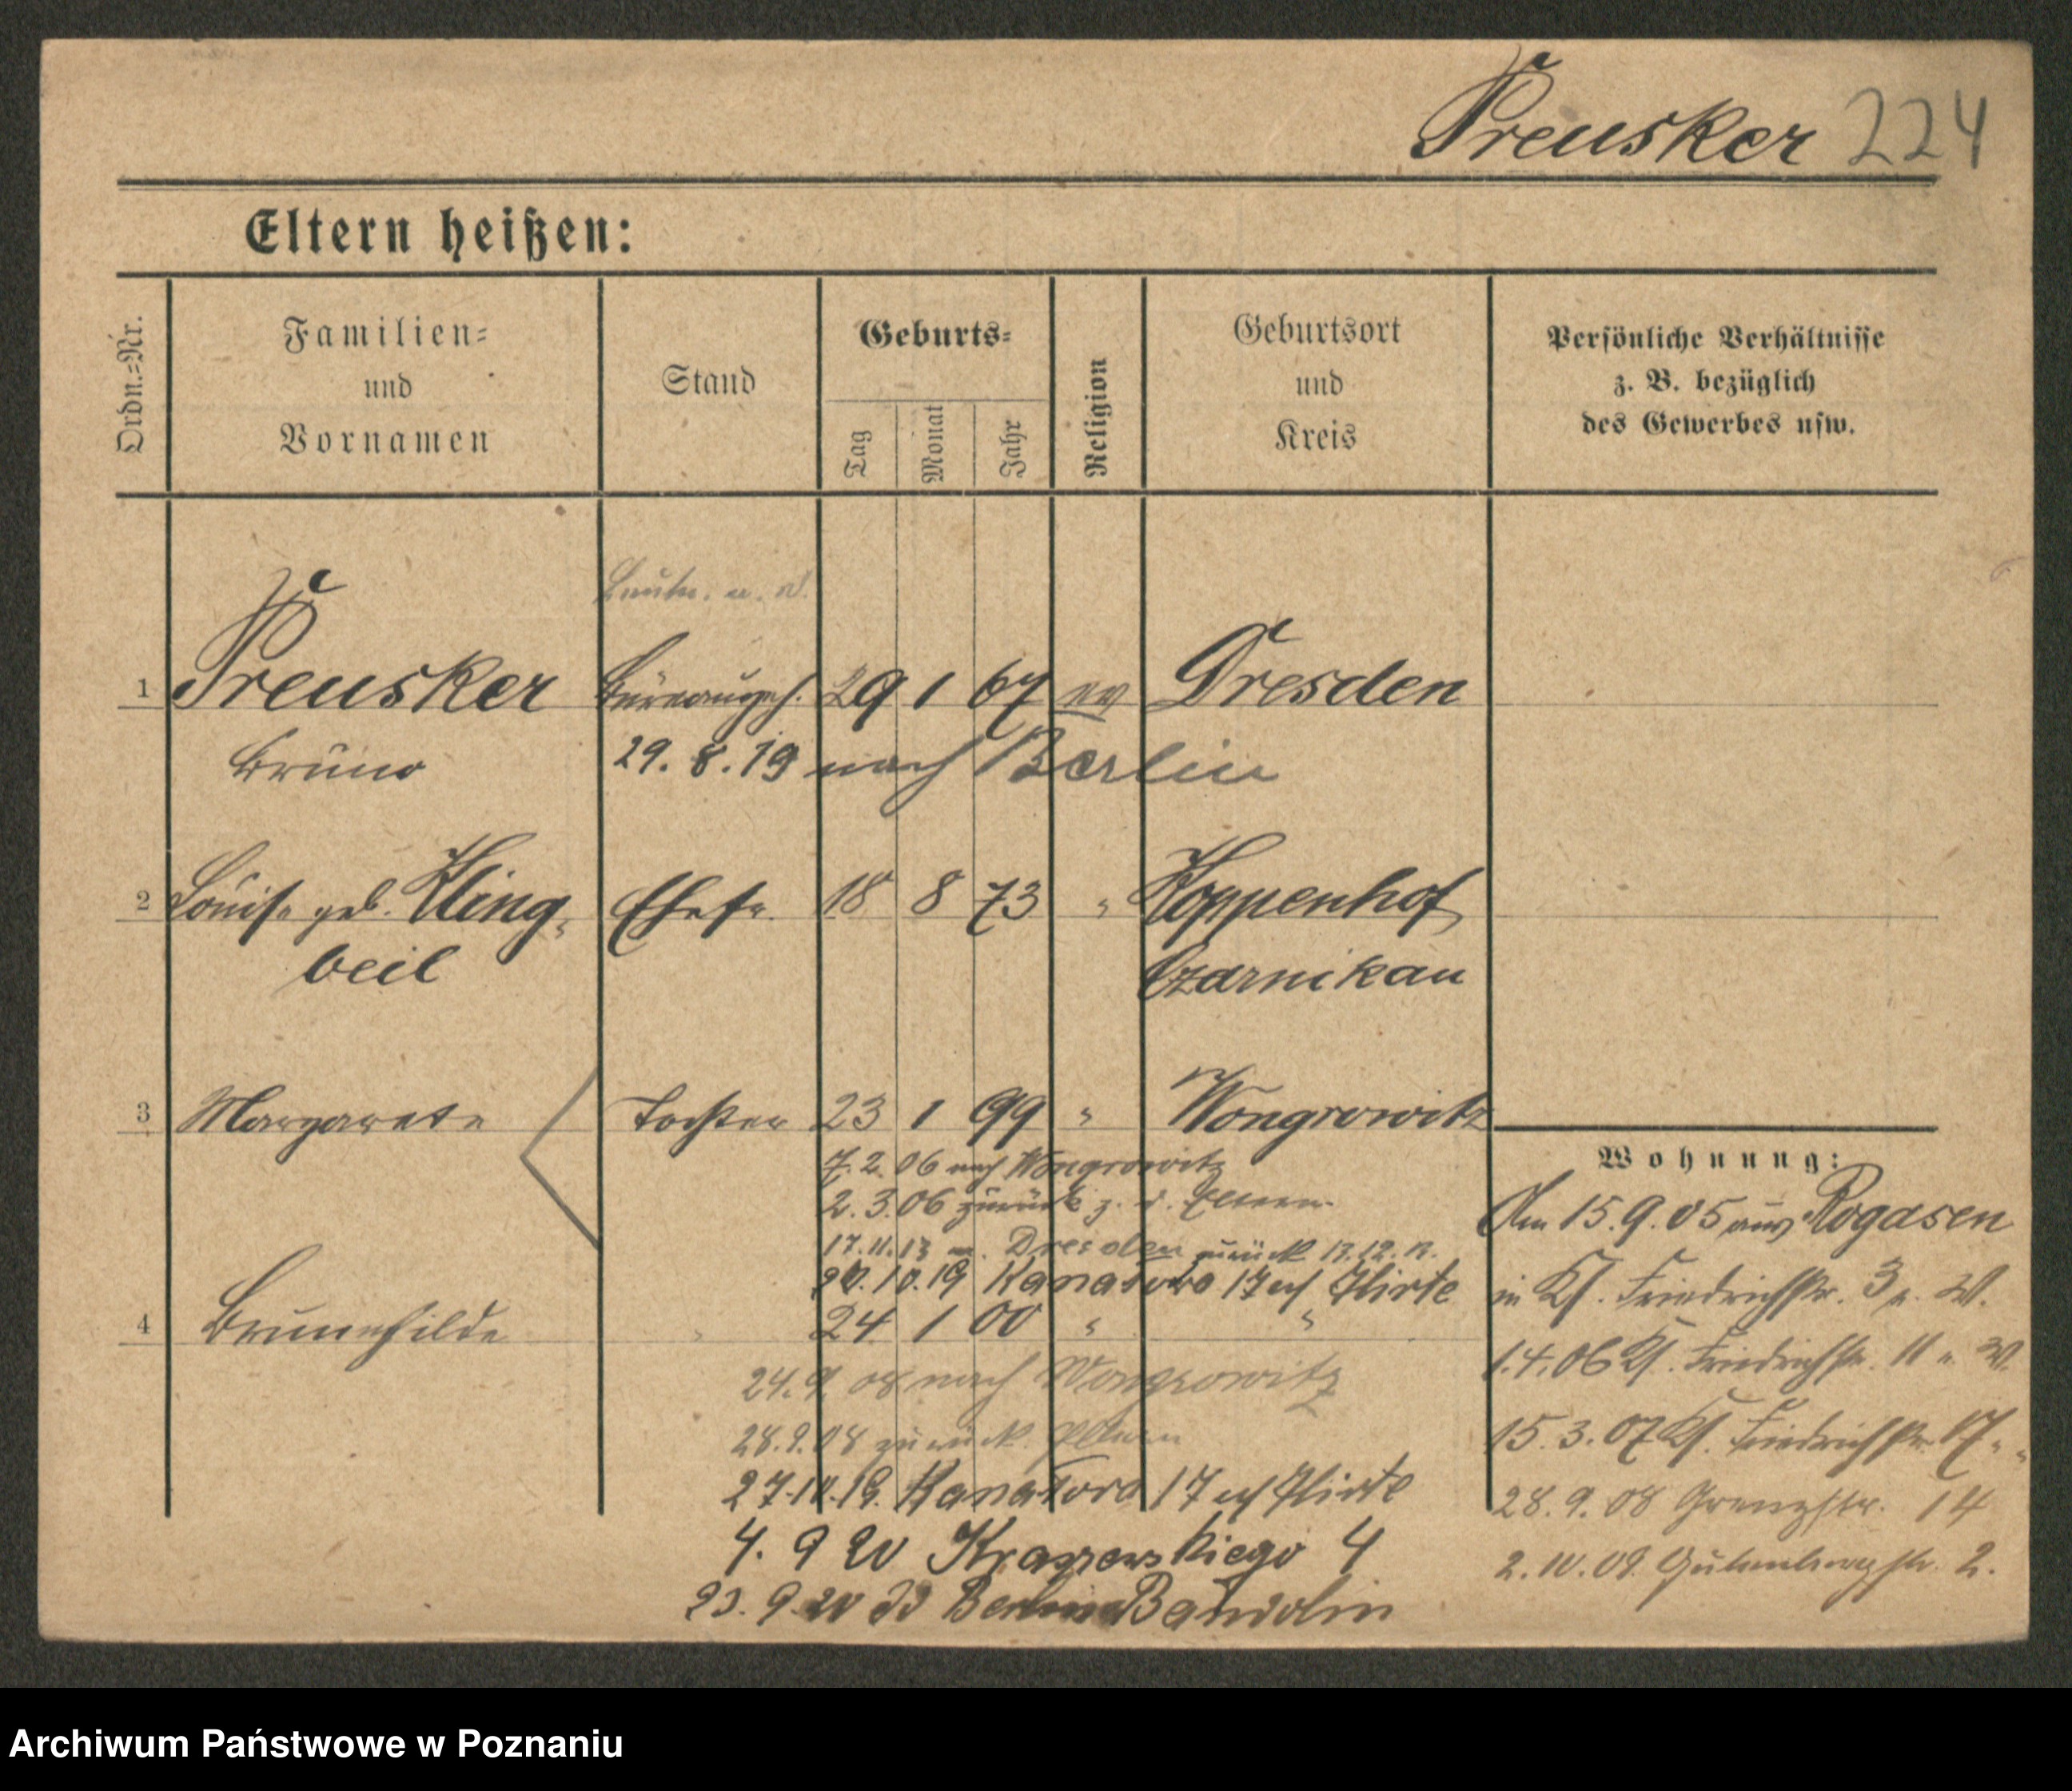 Preusker 224
Eltern heißen:
Ordn.-Nr.
Familien-
und
Vornamen
Stand
Geburts-
Tag
Monat
Jahr
Religion
Geburtsort
und
Kreis
Persönliche Verhältnisse
z. B. bezüglich
des Gewerbes usw.
1 Preusker Büreaugeh. 29 1 67 ev Dresden
Bruno 29. 8. 19 nach Berlin
2 Louise geb. Kling- Ehefr. 18 8 73 " Koppenhof
beil Czarnikau
3 Margarete Tochter 23 1 99 " Wongrowitz
7. 2. 06 nach Wongrowitz
2. 3. 06 zurück z. d. Eltern.
17.11.13 n. Dresden zurück 13.12.13.
20.10.19 Kanatowa 17 Hirte
4 Brunehilde " 24 1 00 " "
24. 9 08 nach Wongrowitz
28.9.08 zurück Eltern
27.10.19. Kanatowa 17 Hirte
4. 9 20 Kraszewskiego 4
23. 9. 20 Berlin
Wohnung:
Am 15. 9. 05 aus Rogasen
in Friedrichstr. 3 W.
1. 4. 06 Friedrichstr. 11 W.
15. 3. 07 Friedrichstr. 17 "
28. 9. 08 Grenzstr. 14
2. 10. 09. Gutenbergstr. 2.
Archiwum Państwowe w Poznaniu